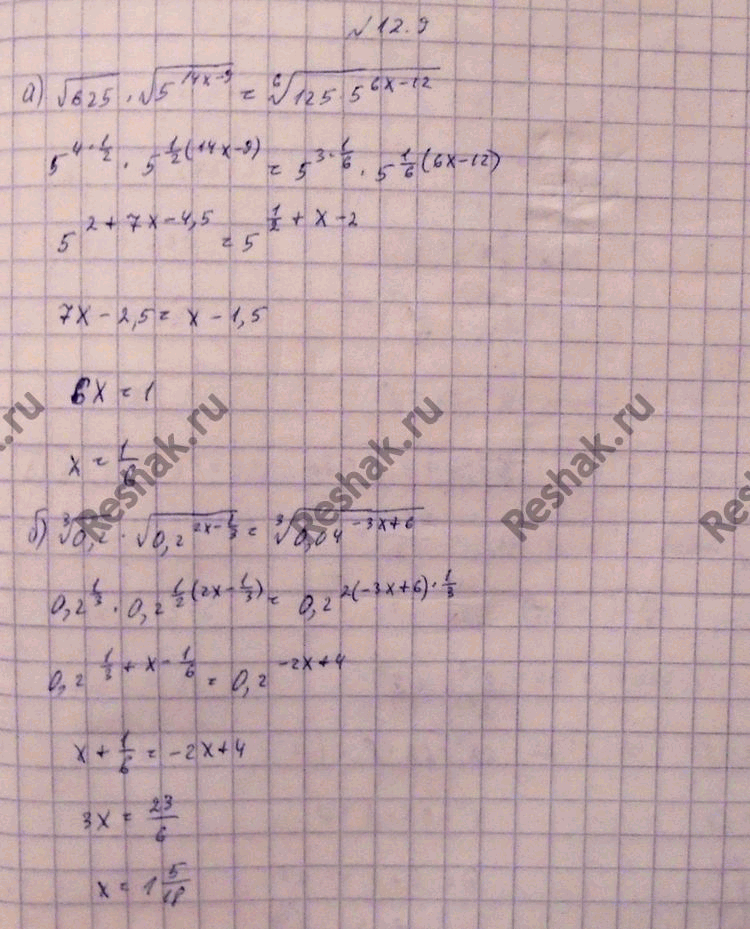 №12.9
а) √625 · √5^(14x-9) = ⁶√125·5^(6x-12)
5^(4·1/2) · 5^(1/2(14x-9)) = 5^(3·1/6) · 5^(1/6(6x-12))
5^(2+7x-4,5) = 5^(1/2+x-2)
7x - 2,5 = x - 1,5
6x = 1
x = 1/6
б) ³√0,2 · √0,2^(2x-1/3) = ³√0,04^(-3x+6)
0,2^(1/3) · 0,2^(1/2(2x-1/3)) = 0,2^(2(-3x+6)·1/3)
0,2^(1/3+x-1/6) = 0,2^(-2x+4)
x + 1/6 = -2x+4
3x = 23/6
x = 1 5/18
Reshak.ru
Reshak.ru
Reshak.ru